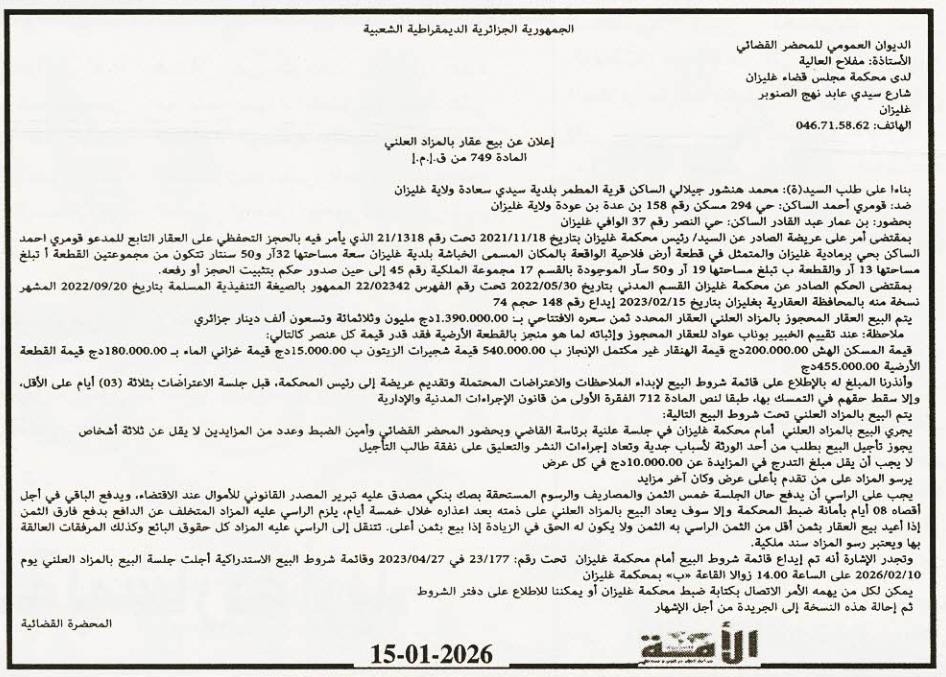 الجمهورية الجزائرية الديمقراطية الشعبية
الديوان العمومي للمحضر القضائي
الأستاذة: مفلاح العالية
لدى محكمة مجلس قضاء غليزان
شارع سيدي عابد نهج الصنوبر
غليزان
الهاتف: 046.71.58.62
إعلان عن بيع عقار بالمزاد العلني
المادة 749 من ق.إ.م.إ
بناءا على طلب السيد(ة): محمد هنشور جيلالي الساكن قرية المطمر بلدية سيدي سعادة ولاية غليزان
ضد: قومري أحمد الساكن: حي 294 مسكن رقم 158 بن عدة بن عودة ولاية غليزان
بحضور: بن عمار عبد القادر الساكن: حي النصر رقم 37 الوافي غليزان
بمقتضى أمر على عريضة الصادر عن السيد/ رئيس محكمة غليزان بتاريخ 2021/11/18 تحت رقم 21/1318 الذي يأمر فيه بالحجز التحفظي على العقار التابع للمدعو قومري احمد
الساكن بحي برمادية غليزان والمتمثل في قطعة أرض فلاحية الواقعة بالمكان المسمى الخباشة بلدية غليزان سعة مساحتها 32آر و50 سنتار تتكون من مجموعتين القطعة أ تبلغ
مساحتها 13 آر والقطعة ب تبلغ مساحتها 19 آر و50 سآر الموجودة بالقسم 17 مجموعة الملكية رقم 45 إلى حين صدور حكم بتثبيت الحجز أو رفعه.
بمقتضى الحكم الصادر عن محكمة غليزان القسم المدني بتاريخ 2022/05/30 تحت رقم الفهرس 22/02342 الممهور بالصيغة التنفيذية المسلمة بتاريخ 2022/09/20 المشهر
نسخة منه بالمحافظة العقارية بغليزان بتاريخ 2023/02/15 إيداع رقم 148 حجم 74
يتم البيع العقار المحجوز بالمزاد العلني العقار المحدد ثمن سعره الافتتاحي بـ: 1.390.000.00دج مليون وثلاثمائة وتسعون ألف دينار جزائري
ملاحظة: عند تقييم الخبير بوناب عواد للعقار المحجوز وإثباته لما هو منجز بالقطعة الأرضية فقد قدر قيمة كل عنصر كالتالي:
قيمة المسكن الهش 200.000.00دج قيمة الهنقار غير مكتمل الإنجاز ب 540.000.00 قيمة شجيرات الزيتون ب 15.000.00دج قيمة خزاني الماء بـ 180.000.00دج قيمة القطعة
الأرضية 455.000.00دج
وأنذرنا المبلغ له بالإطلاع على قائمة شروط البيع لإبداء الملاحظات والاعتراضات المحتملة وتقديم عريضة إلى رئيس المحكمة، قبل جلسة الاعتراضات بثلاثة (03) أيام على الأقل،
وإلا سقط حقهم في التمسك بها، طبقا لنص المادة 712 الفقرة الأولى من قانون الإجراءات المدنية والإدارية
يتم البيع بالمزاد العلني تحت شروط البيع التالية:
يجري البيع بالمزاد العلني أمام محكمة غليزان في جلسة علنية برئاسة القاضي وبحضور المحضر القضائي وأمين الضبط وعدد من المزايدين لا يقل عن ثلاثة أشخاص
يجوز تأجيل البيع بطلب من أحد الورثة لأسباب جدية وتعاد إجراءات النشر والتعليق على نفقة طالب التأجيل
لا يجب أن يقل مبلغ التدرج في المزايدة عن 10.000.00دج في كل عرض
يرسو المزاد على من تقدم بأعلى عرض وكان آخر مزايد
يجب على الراسي أن يدفع حال الجلسة خمس الثمن والمصاريف والرسوم المستحقة بصك بنكي مصدق عليه تبرير المصدر القانوني للأموال عند الاقتضاء، ويدفع الباقي في أجل
أقصاه 08 أيام بأمانة ضبط المحكمة وإلا سوف يعاد البيع بالمزاد العلني على ذمته بعد اعذاره خلال خمسة أيام، يلزم الراسي عليه المزاد المتخلف عن الدافع بدفع فارق الثمن
إذا أعيد بيع العقار بثمن أقل من الثمن الراسي به الثمن ولا يكون له الحق في الزيادة إذا بيع بثمن أعلى. تنتقل إلى الراسي عليه المزاد كل حقوق البائع وكذلك المرفقات العالقة
بها ويعتبر رسو المزاد سند ملكية.
وتجدر الإشارة أنه تم إيداع قائمة شروط البيع أمام محكمة غليزان تحت رقم: 23/177 في 2023/04/27 وقائمة شروط البيع الاستدراكية أجلت جلسة البيع بالمزاد العلني يوم
2026/02/10 على الساعة 14.00 زوالا القاعة «ب» بمحكمة غليزان
يمكن لكل من يهمه الأمر الاتصال بكتابة ضبط محكمة غليزان أو يمكننا للاطلاع على دفتر الشروط
تم إحالة هذه النسخة إلى الجريدة من أجل الإشهار
المحضرة القضائية
الأمة
15-01-2026